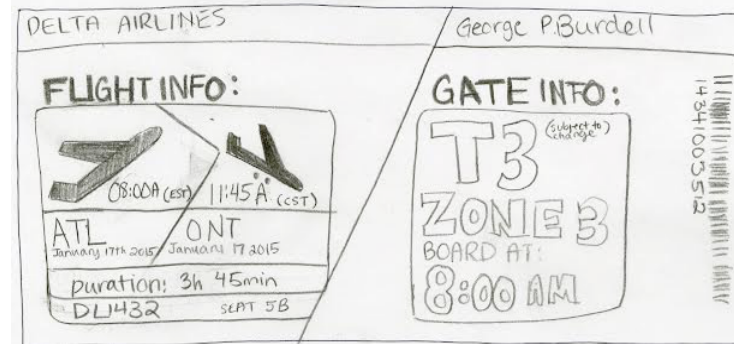 DELTA AIRLINES
George P.Burdell
FLIGHT INFO:
08:00A (EST)
11:45 A (CST)
ATL
January 17th 2015
ONT
January 17 2015
Duration: 3h 45min
DL1432
SEAT 5B
GATE INFO:
T3 (subject to change)
ZONE 3
BOARD AT:
8:00 AM
14341003512